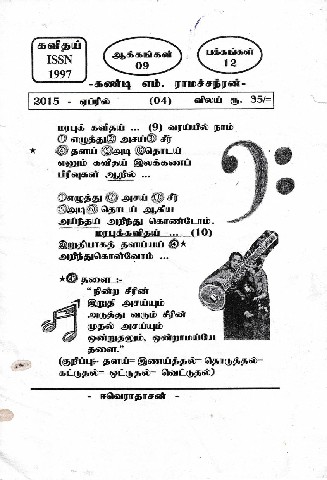 கவிதய்
ISSN
1997
ஆக்கங்கள்
09
பக்கங்கள்
12
-கண்டி எம். ராமச்சந்ரன்-
2015 - ஏப்ரில் (04) விலய் ரூ. 35/=
மரபுக் கவிதய் ... (9) வரய்யில் நாம்
எழுத்து அசய் சீர்
தளய் அடி தொடய்
எனும் கவிதய் இலக்கணப்
பிரிவுகள் ஆறில் ...
எழுத்து அசய் சீர்
அடி தொடய் ஆகிய
அய்ந்தய் அறிந்து கொண்டோம்.
மரபுக்கவிதய் ... (10)
இறுதியாகத் தளய்யய்
அறிந்துகொள்வோம் ...
தளை :-
"நின்ற சீரின்
இறுதி அசய்யும்
அடுத்து வரும் சீரின்
முதல் அசய்யும்
ஒன்றுதலும், ஒன்றாமய்யே
தளை."
(குறிப்பு- தளய்= இணய்த்தல்= தொடுத்தல்=
கட்டுதல்= ஒட்டுதல்= வெட்டுதல்)
- ஈவெராதாசன் -